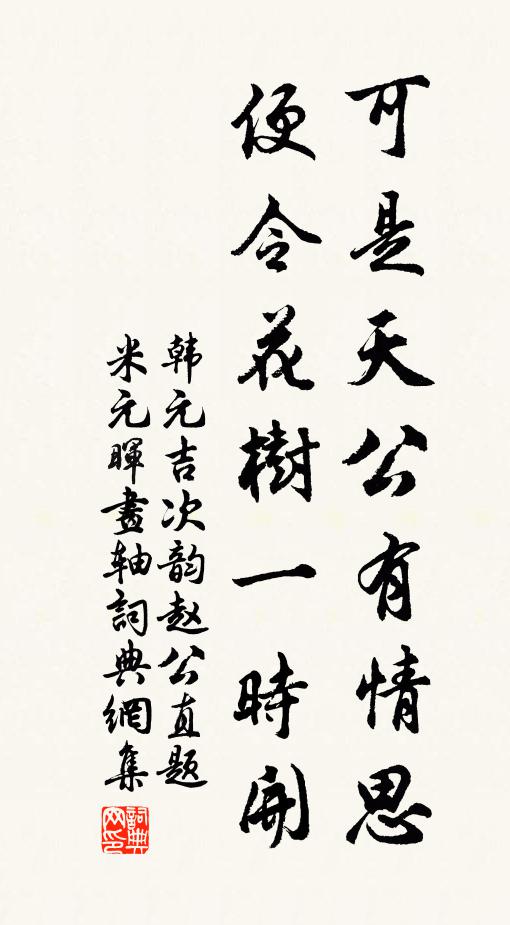 可是天公有情思
便令花樹一時開
韩元吉次韵赵公直题
米元暉畫轴詞典網集
詞典網印